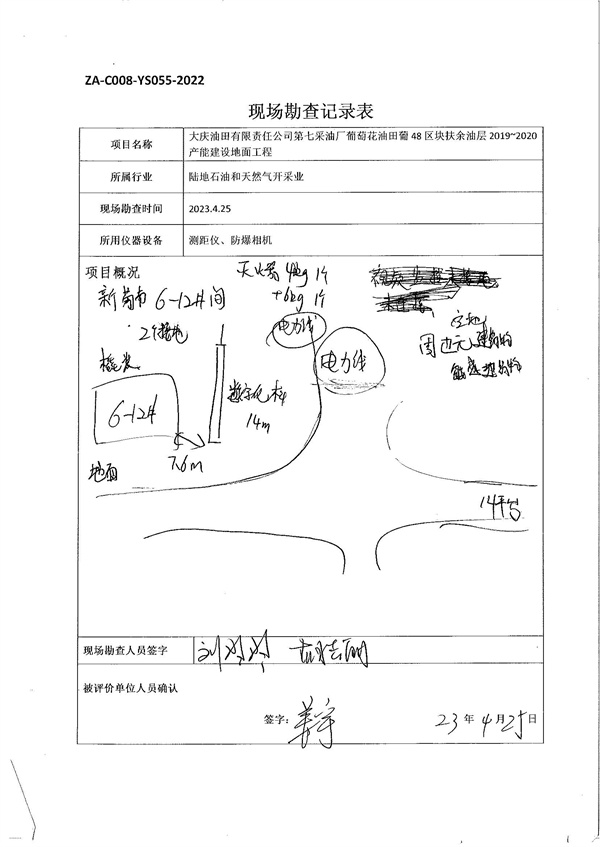 ZA-C008-YS055-2022
现场勘查记录表
项目名称
大庆油田有限责任公司第七采油厂葡萄花油田葡 48 区块扶余油层 2019~2020
产能建设地面工程
所属行业
陆地石油和天然气开采业
现场勘查时间
2023.4.25
所用仪器设备
测距仪、防爆相机
项目概况
灭火器 4kg 1个
+6kg 1个
6-12#间
电力线
电力线
空地
周边无
6-12#
数字化杆
14m
7.6m
地面
14平台
现场勘查人员签字
被评价单位人员确认
签字：
23 年 4 月 25 日